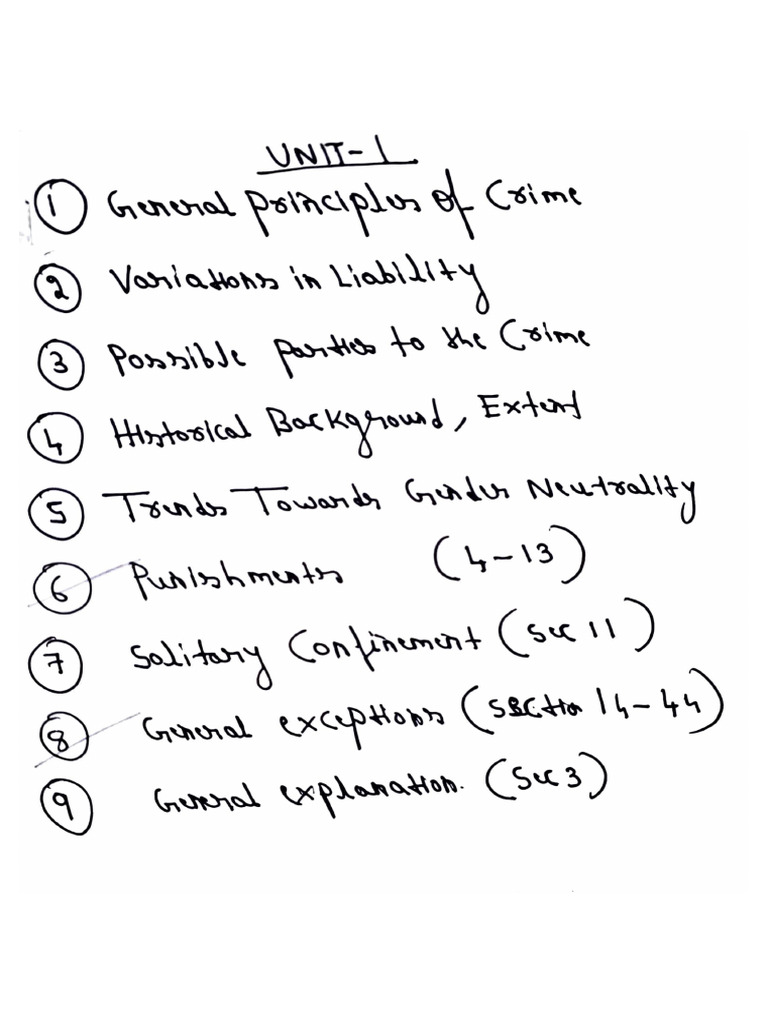 UNIT-1
1 General principles of Crime
2 Variations in Liability
3 Possible parties to the Crime
4 Historical Background, Extent
5 Trends Towards Gender Neutrality
6 Punishments (4-13)
7 Solitary Confinement (Sec 11)
8 General exceptions (Section 14-44)
9 General explanation. (Sec 3)